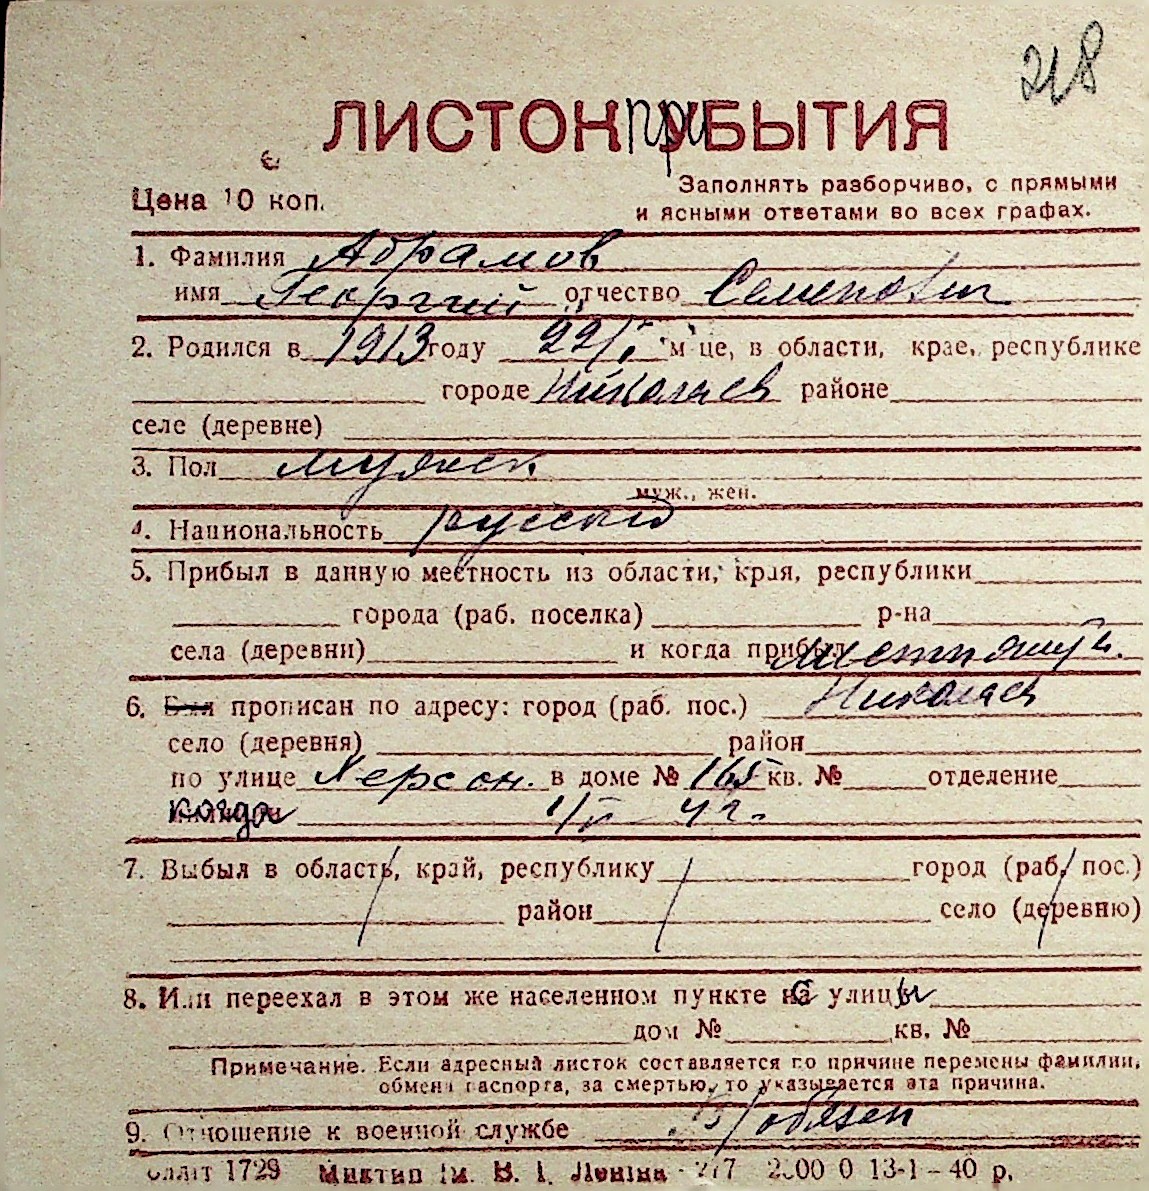 218
ЛИСТОК при БЫТИЯ
Цена 10 коп.
Заполнять разборчиво, с прямыми
и ясными ответами во всех графах.
1. Фамилия Абрамов
имя Георгий отчество Семенович
2. Родился в 1913 году 22/ м-це, в области, крае, республике
городе Николаев районе
селе (деревне)
3. Пол мужск.
муж., жен.
4. Национальность русский
5. Прибыл в данную местность из области, края, республики
города (раб. поселка) р-на
села (деревни) и когда прибыл
6. прописан по адресу: город (раб. пос.) Николаев
село (деревня) район
по улице Херсон. в доме № 165 кв. № отделение
когда
7. Выбыл в область, край, республику город (раб. пос.)
район село (деревню)
8. Или переехал в этом же населенном пункте с улицы
дом № кв. №
Примечание. Если адресный листок составляется по причине перемены фамилии,
обмена паспорта, за смертью, то указывается эта причина.
9. Отношение к военной службе в/обязан
1729 Миктип ім. В. І. Леніна 13-1-40 р.